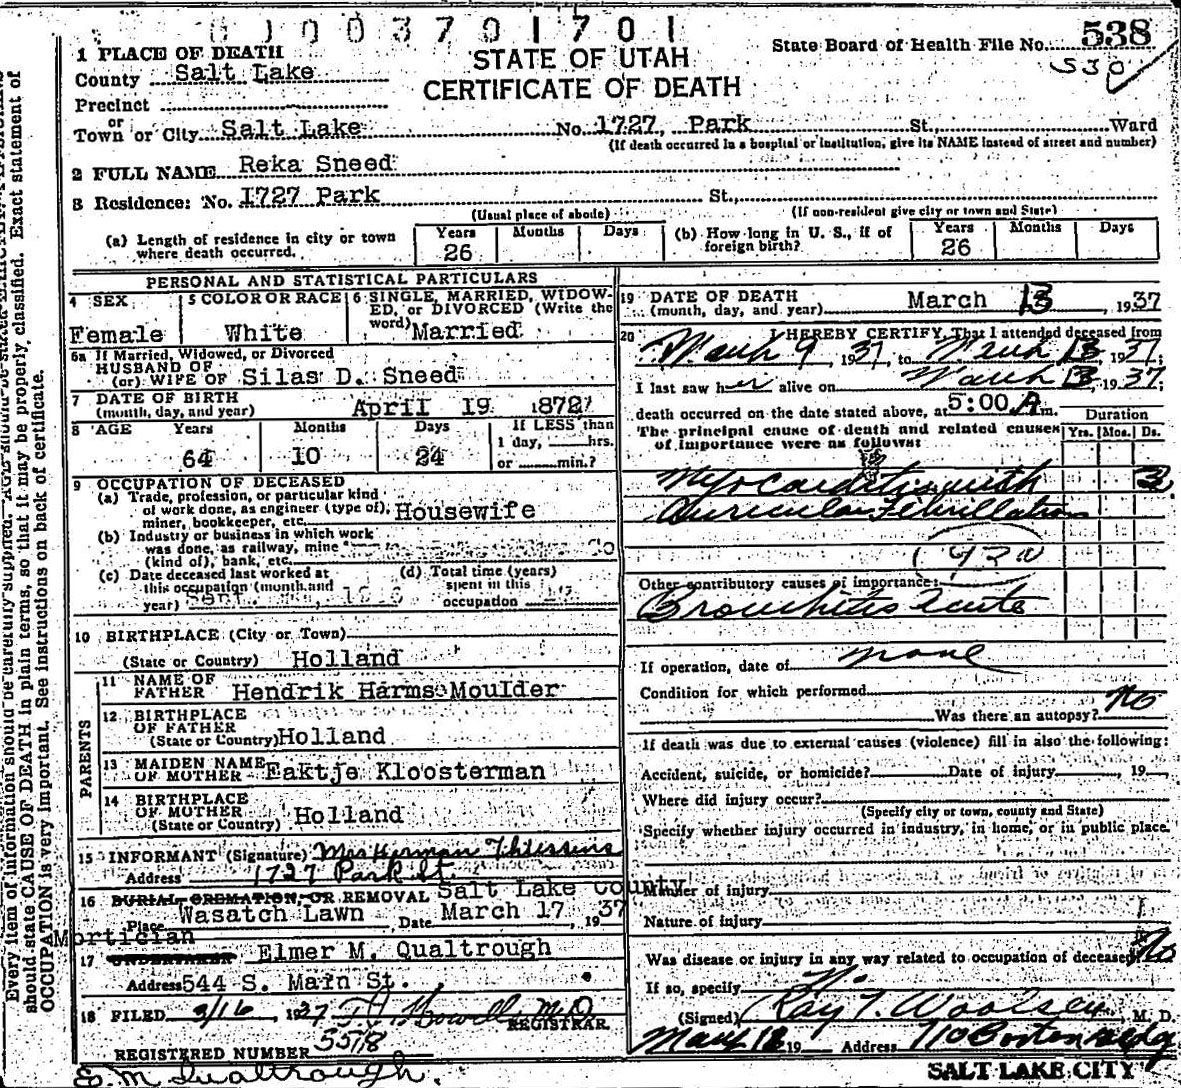 0 0 0 3 7 0 1 7 0 1
538
State Board of Health File No.
530
STATE OF UTAH
CERTIFICATE OF DEATH
1 PLACE OF DEATH
County Salt Lake
Precinct
or
Town or City Salt Lake No. 1727, Park St., Ward
(If death occurred in a hospital or institution, give its NAME instead of street and number)
2 FULL NAME Reka Sneed
3 Residence: No. 1727 Park St.,
(Usual place of abode) (If non-resident give city or town and State)
(a) Length of residence in city or town where death occurred. Years 26 Months Days
(b) How long in U. S., if of foreign birth? Years 26 Months Days
PERSONAL AND STATISTICAL PARTICULARS
4 SEX Female
5 COLOR OR RACE White
6 SINGLE, MARRIED, WIDOWED, or DIVORCED (Write the word) Married
6a If Married, Widowed, or Divorced
HUSBAND OF
(or) WIFE OF Silas D. Sneed
7 DATE OF BIRTH
(month, day, and year) April 19 1872
8 AGE Years 64 Months 10 Days 24 If LESS than 1 day, hrs. or min.?
9 OCCUPATION OF DECEASED
(a) Trade, profession, or particular kind of work done, as engineer (type of), miner, bookkeeper, etc. Housewife
(b) Industry or business in which work was done, as railway, mine (kind of), bank, etc.
(c) Date deceased last worked at this occupation (month and year)
(d) Total time (years) spent in this occupation
10 BIRTHPLACE (City or Town)
(State or Country) Holland
PARENTS
11 NAME OF FATHER Hendrik Harms Moulder
12 BIRTHPLACE OF FATHER
(State or Country) Holland
13 MAIDEN NAME OF MOTHER Eaktje Kloosterman
14 BIRTHPLACE OF MOTHER
(State or Country) Holland
15 INFORMANT (Signature) Mrs Herman Thiessens
Address 1727 Park St.
16 BURIAL, CREMATION, OR REMOVAL Salt Lake County
Place Wasatch Lawn Date March 17, 1937
Mortician
17 UNDERTAKER Elmer M. Qualtrough
Address 544 S. Main St.
18 FILED 3/16, 1937 REGISTRAR
REGISTERED NUMBER 5578
E. M Qualtrough.
19 DATE OF DEATH
(month, day, and year) March 13, 1937
20 I HEREBY CERTIFY, That I attended deceased from
March 9, 1937, to March 13, 1937;
I last saw her alive on March 13, 1937;
death occurred on the date stated above, at 5:00 A m.
The principal cause of death and related causes of importance were as follows:
Duration
Yrs. Mos. Ds.
Myocarditis with 3
Auricular Fibrillation
Other contributory causes of importance:
Bronchitis Acute
If operation, date of none
Condition for which performed
Was there an autopsy? No
If death was due to external causes (violence) fill in also the following:
Accident, suicide, or homicide? Date of injury , 19
Where did injury occur?
(Specify city or town, county and State)
Specify whether injury occurred in industry, in home, or in public place.
Manner of injury
Nature of injury
Was disease or injury in any way related to occupation of deceased? No
If so, specify
(Signed) Ray T. Woolsey, M. D.
19 Address 710 Boston Bldg
SALT LAKE CITY
should state CAUSE OF DEATH in plain terms, so that it may be properly classified. Exact statement of
OCCUPATION is very important. See instructions on back of certificate.